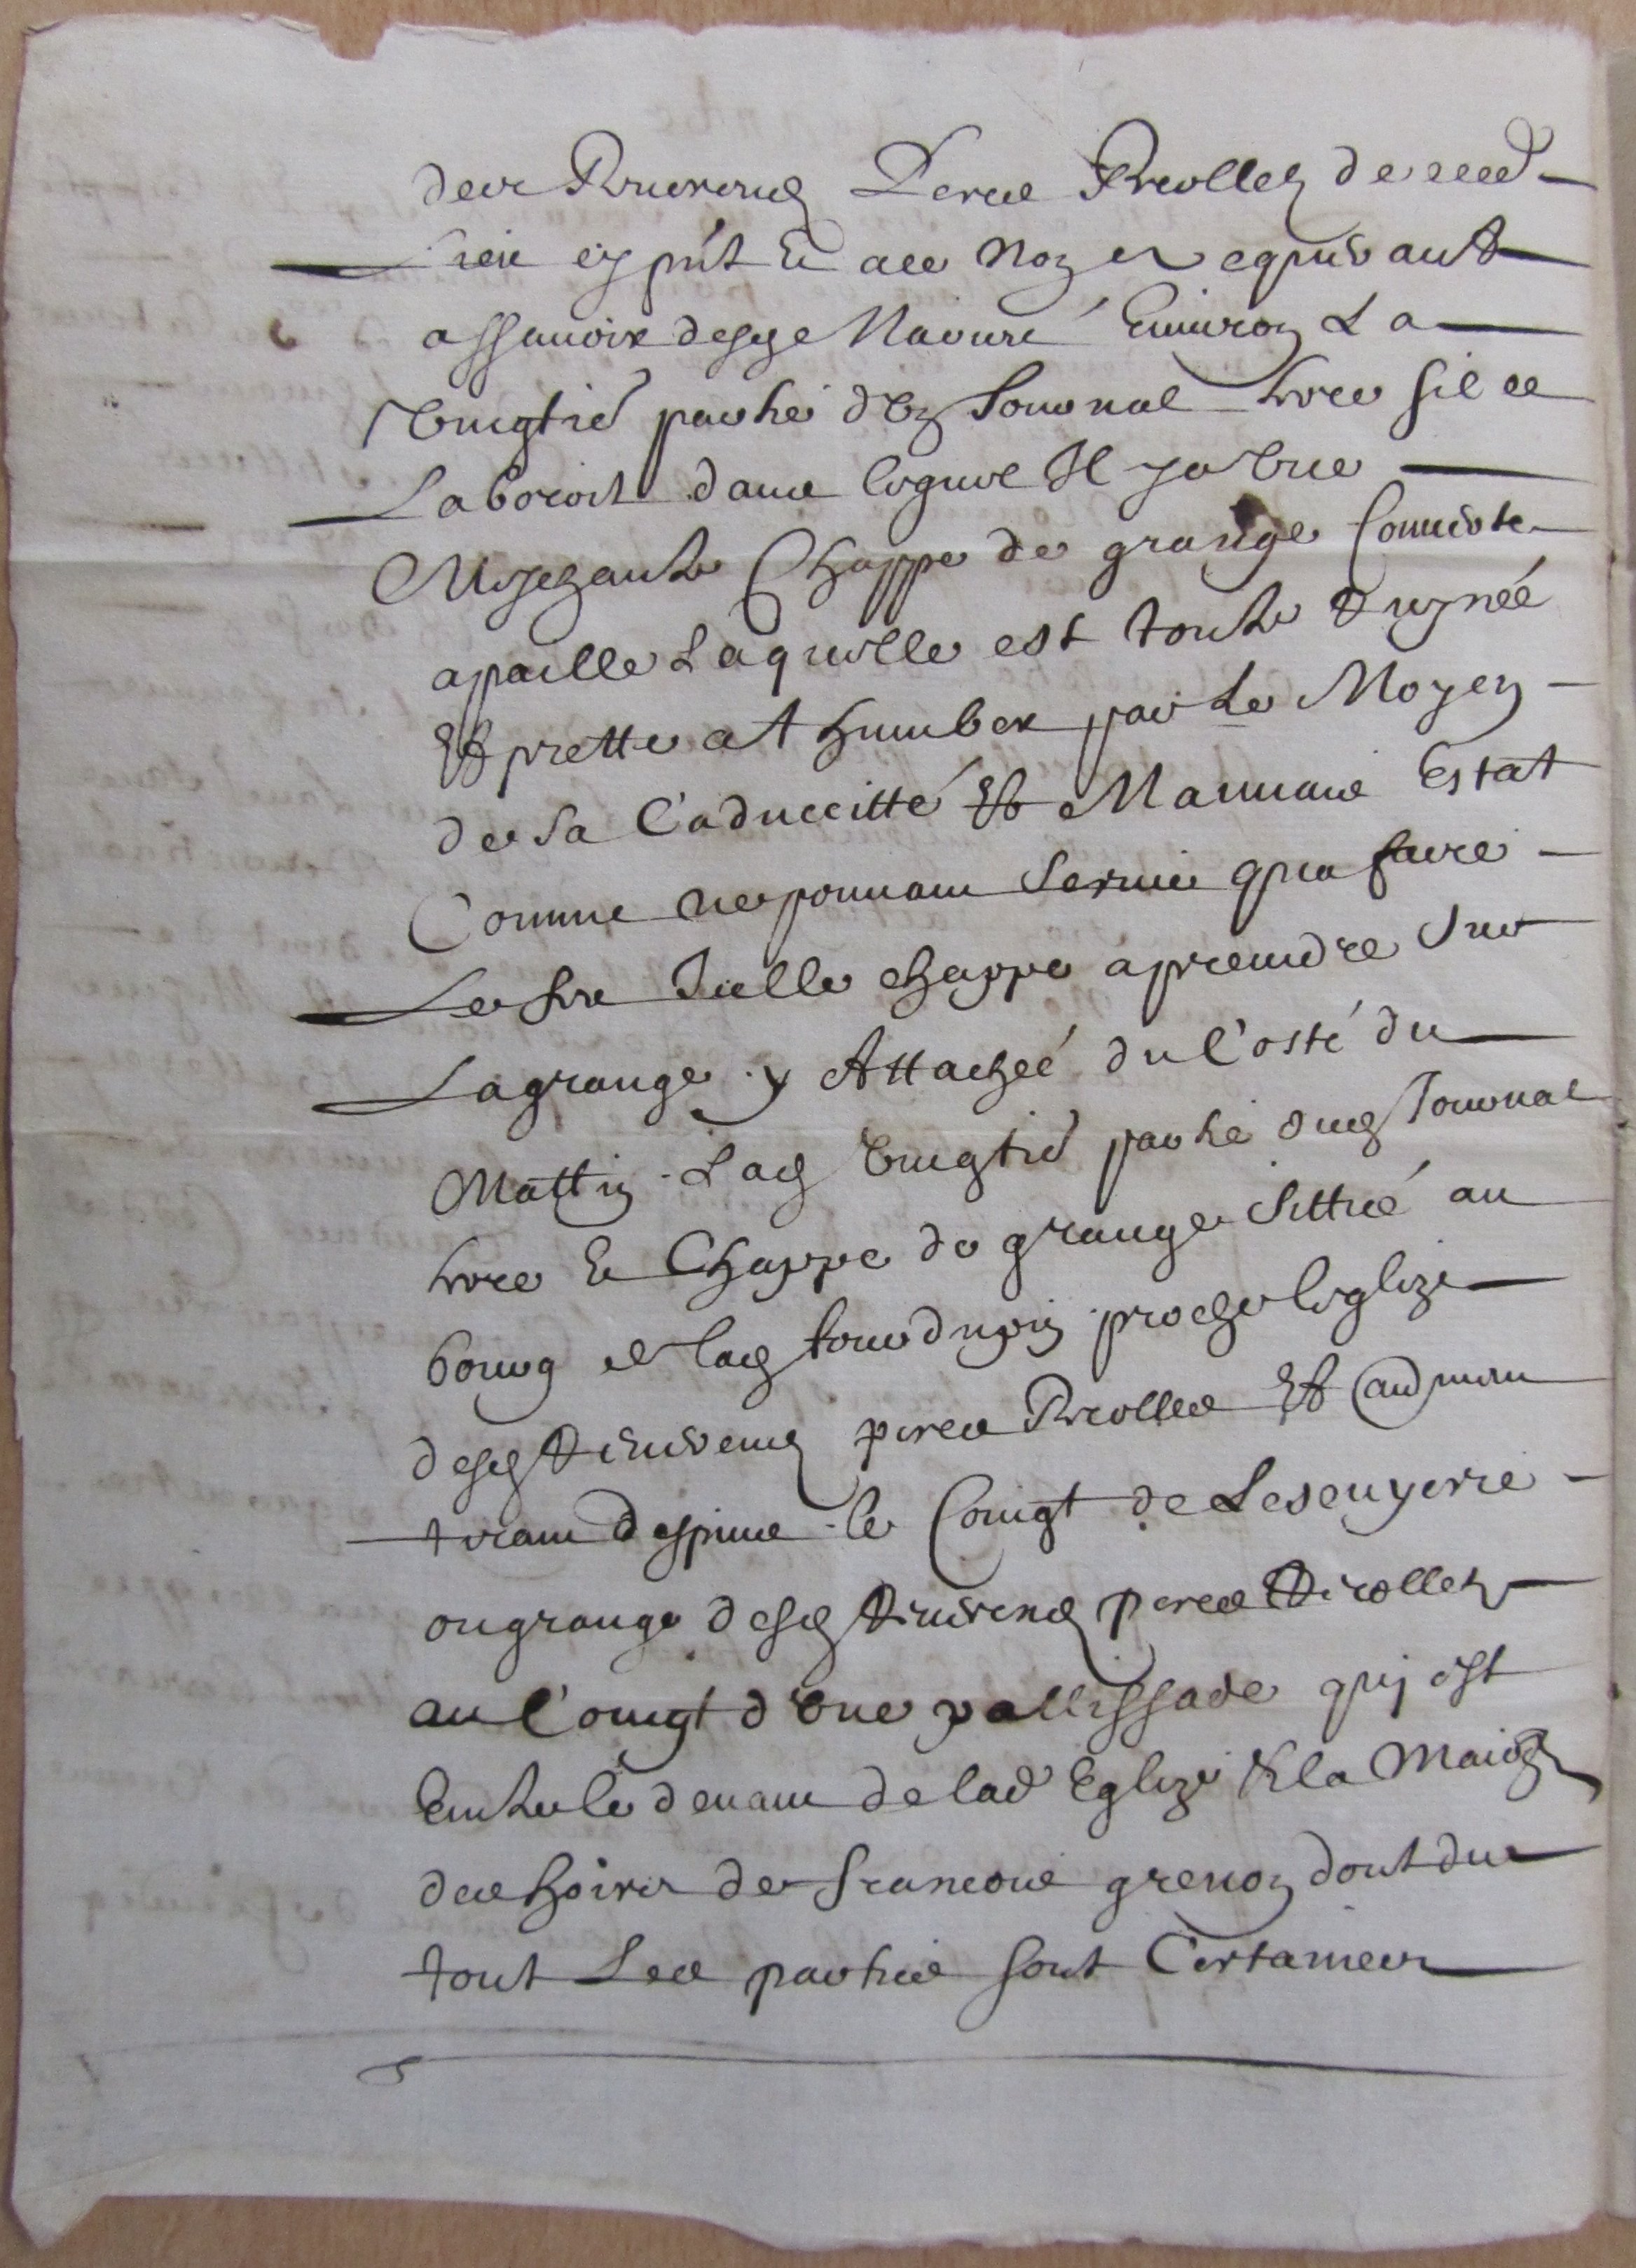 des Reverends Peres Recolles de ced
Lieu cy pnt Et au Nom et cquevant
assavoir de sye Navire Environ La
vingtie partie d'un Journal terre sil se
Labouroit dans lequel Il ya une
Meschante Chappe de grange Couverte
apaille Laquelle est toute Ruynée
Et prette at thumber par Le Moyen
de Sa Caduccitté Et Mauvais Estat
Comme ne pouvant Servir qua faire
Le feu Icelle chappe aprendre Sur
La grange y Attachéé du Costé du
Mattin Lad vingtie partie dung Journal
terre Et Chappe de grange Sittué au
bourg et proche leglize
desd Reverends peres Recolles Et
le Coingt de Lescuyerie
ou grange desd Reverend peres Recollez
au Coingt d'une pallissade quj est
Entre le devant de lad Eglize Et la Maison
des hoirs de francois grenon dont du
tout Les parties sont Certaines